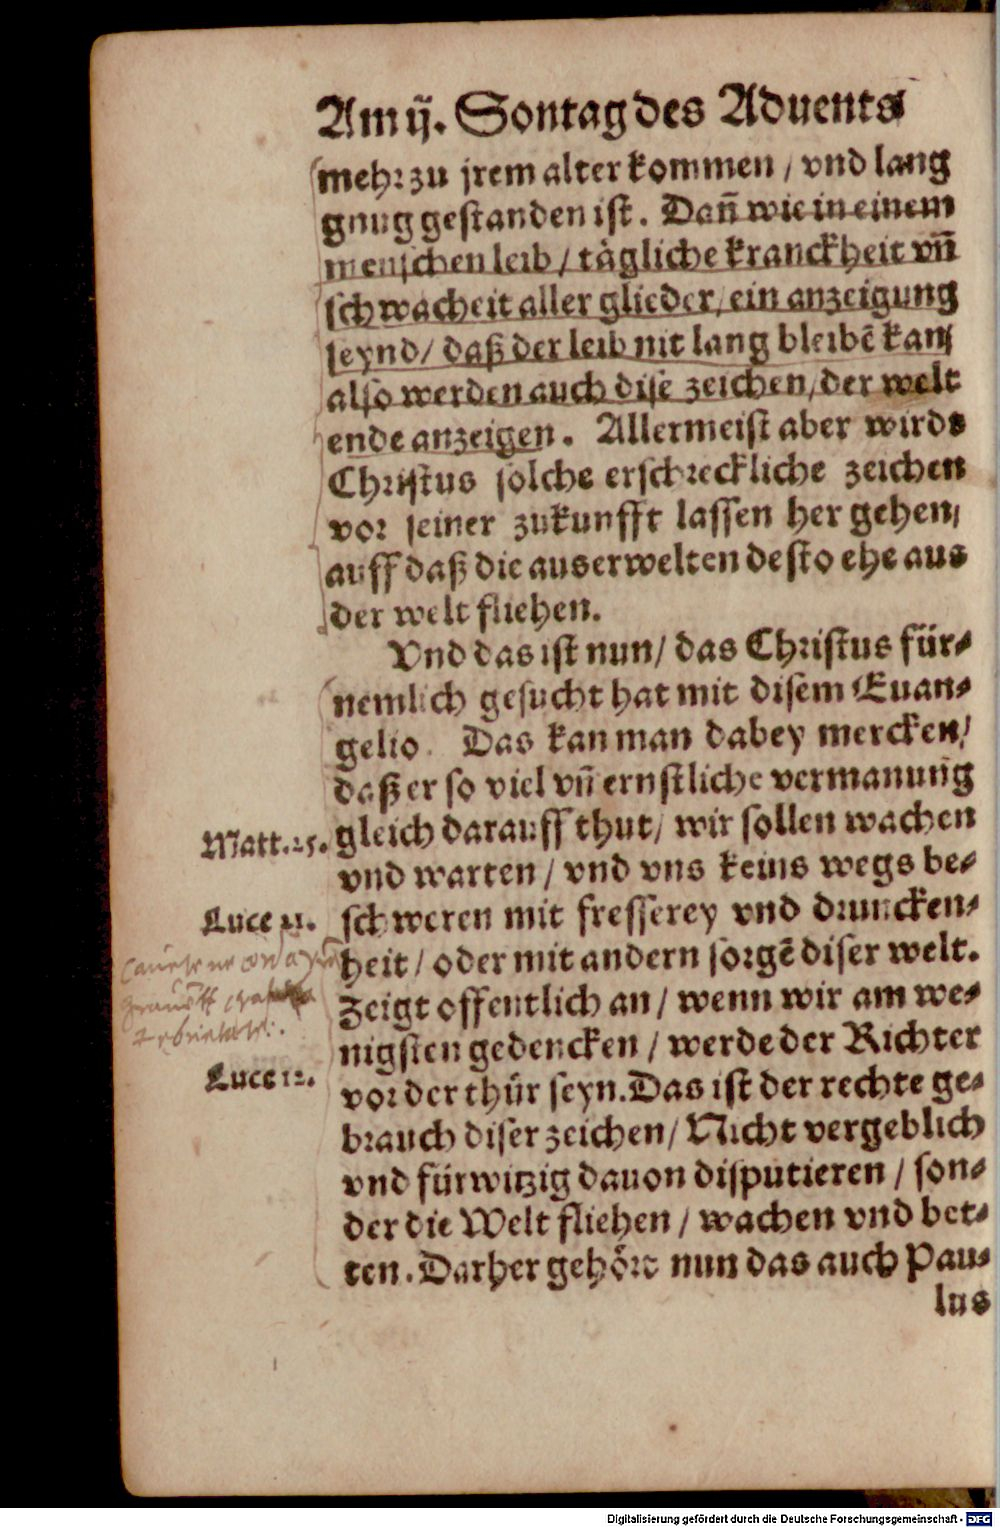 Am ij. Sontag des Aduents
mehr zu jrem alter kommen / vnd lang
gnug gestanden ist. Dañ wie in einem
menschen leib / tågliche kranckheit vñ
schwacheit aller glieder / ein anzeigung
seynd / daß der leib nit lang bleibẽ kan /
also werden auch dise zeichen / der welt
ende anzeigen. Allermeist aber wirds
Christus solche erschreckliche zeichen
vor seiner zukunfft lassen her gehen /
auff daß die auserwelten desto ehe aus
der welt fliehen.
Vnd das ist nun / das Christus für⸗
nemlich gesucht hat mit disem Euan⸗
gelio. Das kan man dabey mercken /
daß er so viel vñ ernstliche vermanung
Matt. 25. gleich darauff thut / wir sollen wachen
vnd warten / vnd vns keins wegs be⸗
Luce 21. schweren mit fresserey vnd druncken⸗
heit / oder mit andern sorgẽ diser welt.
Zeigt offentlich an / wenn wir am we⸗
nigsten gedencken / werde der Richter
Luce 12. vor der thür seyn. Das ist der rechte ge⸗
brauch diser zeichen / Nicht vergeblich
vnd fürwitzig dauon disputieren / son⸗
der die Welt fliehen / wachen vnd bet⸗
ten. Darher gehört nun das auch Pau⸗
lus
Digitalisierung gefördert durch die Deutsche Forschungsgemeinschaft - DFG